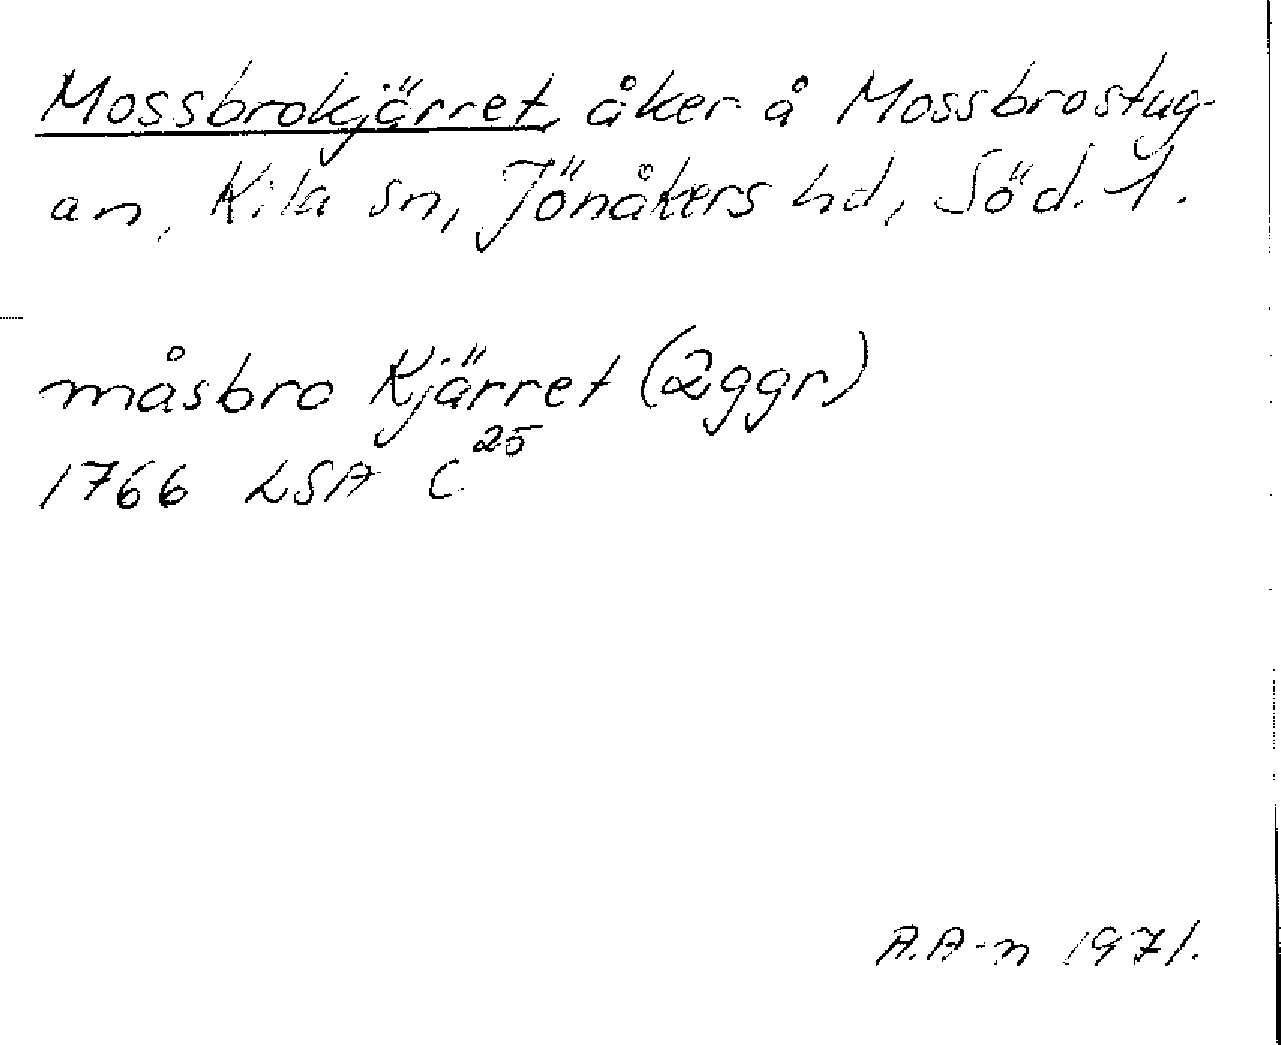 Mossbrokjärret, åker å Mossbrostug-
an, Kila sn, Jönåkers hd, Söd. l.
måsbro Kjärret (2ggr)
1766 LSA C 25
A.A-n 1971.